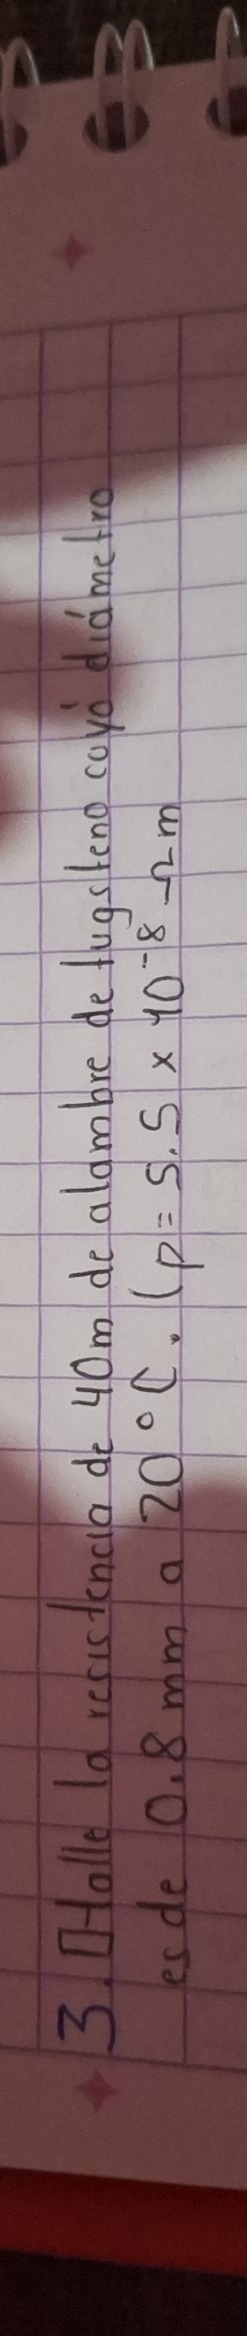 3. Halle la resistencia de 40m de alambre de tugsteno cuyo diámetro
es de 0.8 mm a 20°C. (ρ = 5.5 x 10⁻⁸ Ωm